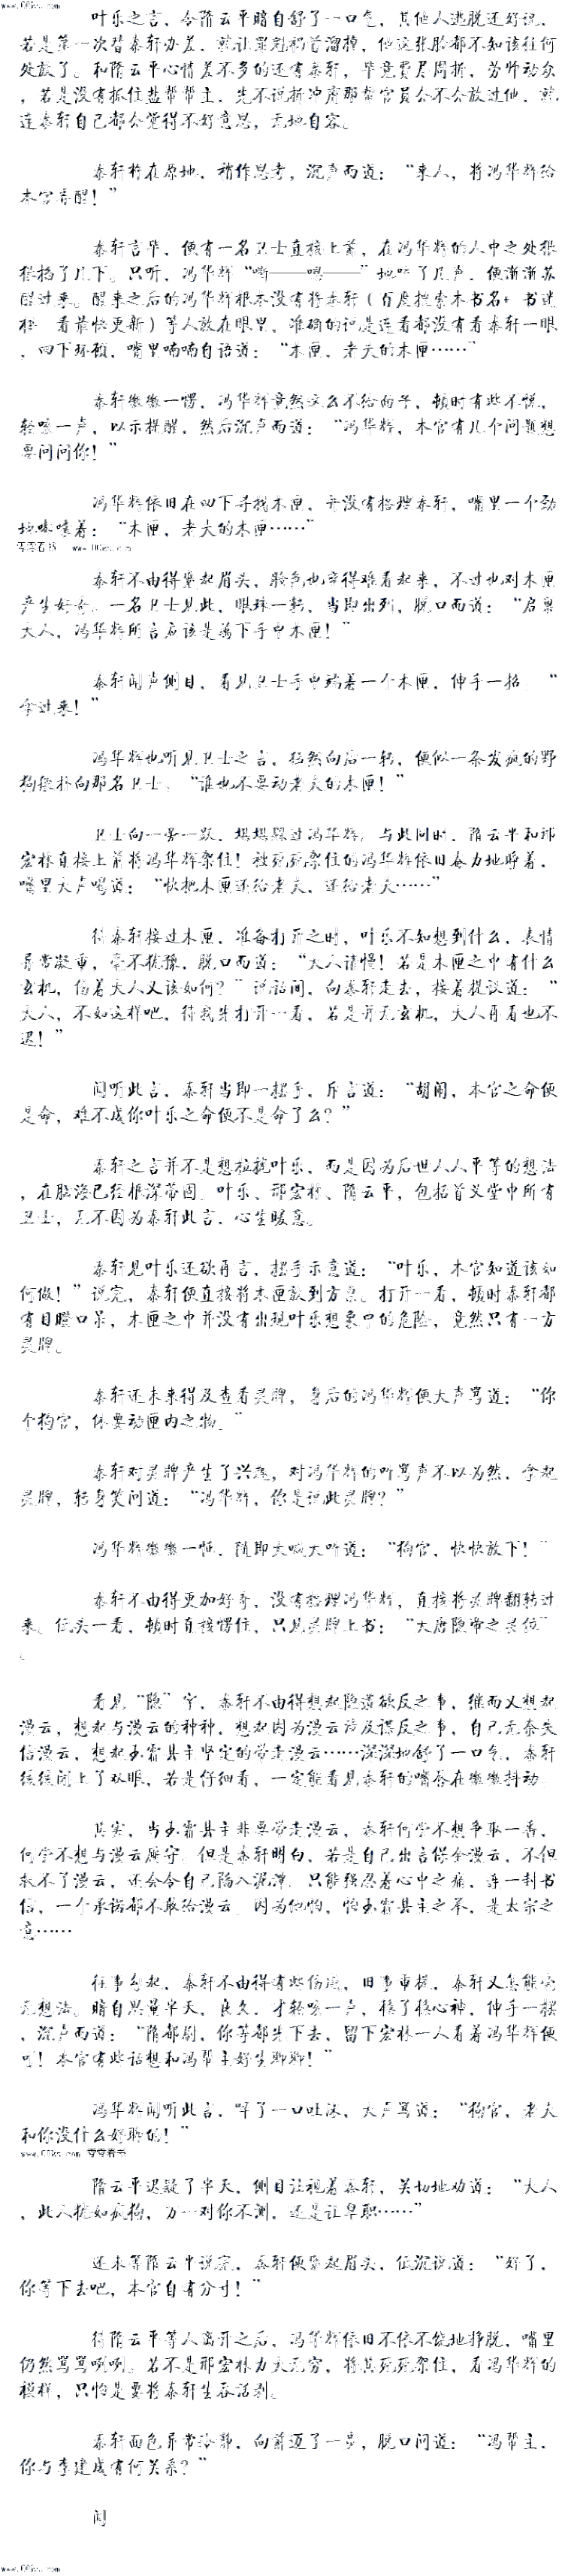 www.00ks.com
叶乐之言，令隋云平暗自舒了一口气，其他人逃脱还好说，
若是第一次替秦轩办差，就让罪魁祸首溜掉，他这张脸都不知该往何
处放了。和隋云平心情差不多的还有秦轩，毕竟费尽周折，劳师动众
，若是没有抓住盐帮帮主，先不说折冲府那帮官员会不会放过他，就
连秦轩自己都会觉得不好意思，无地自容。
秦轩将在原地，稍作思考，沉声而道：“来人，将冯华辉给
本官弄醒！”
秦轩言毕，便有一名卫士直接上前，在冯华辉的人中之处狠
狠掐了几下。只听，冯华辉“嘶——嘿——”地咳了几声，便渐渐苏
醒过来。醒来之后的冯华辉根本没有将秦轩（百度搜索本书名+书迷
楼 看最快更新）等人放在眼里，准确的说是连看都没有看秦轩一眼
，四下环顾，嘴里喃喃自语道：“木匣，老夫的木匣……”
秦轩微微一愣，冯华辉竟然这么不给面子，顿时有些不悦，
轻咳一声，以示提醒，然后沉声而道：“冯华辉，本官有几个问题想
要问问你！”
冯华辉依旧在四下寻找木匣，并没有搭理秦轩，嘴里一个劲
地嚷嚷着：“木匣，老夫的木匣……”
零零看书 www.00ks.com
秦轩不由得蹙起眉头，脸色也变得难看起来，不过也对木匣
产生好奇。一名卫士见此，眼珠一转，当即出列，脱口而道：“启禀
大人，冯华辉所言应该是属下手中木匣！”
秦轩闻声侧目，看见卫士手中端着一个木匣，伸手一招，“
拿过来！”
冯华辉也听见卫士之言，猛然向后一转，便似一条发疯的野
狗般扑向那名卫士，“谁也不要动老夫的木匣！”
卫士向一旁一跃，堪堪躲过冯华辉，与此同时，隋云平和邢
宏林直接上前将冯华辉架住！被死死架住的冯华辉依旧奋力地挣着，
嘴里大声喝道：“快把木匣还给老夫，还给老夫……”
待秦轩接过木匣，准备打开之时，叶乐不知想到什么，表情
异常凝重，毫不犹豫，脱口而道：“大人请慢！若是木匣之中有什么
玄机，伤着大人又该如何？”说话间，向秦轩走去，接着提议道：“
大人，不如这样吧，待我先打开一看，若是并无玄机，大人再看也不
迟！”
闻听此言，秦轩当即一摆手，斥言道：“胡闹，本官之命便
是命，难不成你叶乐之命便不是命了么？”
秦轩之言并不是想拉拢叶乐，而是因为后世人人平等的想法
，在脑海已经根深蒂固。叶乐、邢宏林、隋云平，包括首义堂中所有
卫士，无不因为秦轩此言，心生暖意。
秦轩见叶乐还欲再言，摆手示意道：“叶乐，本官知道该如
何做！”说完，秦轩便直接将木匣放到方桌。打开一看，顿时秦轩都
有目瞪口呆，木匣之中并没有出现叶乐想象中的危险，竟然只有一方
灵牌。
秦轩还未来得及查看灵牌，身后的冯华辉便大声骂道：“你
个狗官，休要动匣内之物。”
秦轩对灵牌产生了兴趣，对冯华辉的怒骂声不以为然，拿起
灵牌，转身笑问道：“冯华辉，你是说此灵牌？”
冯华辉微微一怔，随即大喊大叫道：“狗官，快快放下！”
秦轩不由得更加好奇，没有搭理冯华辉，直接将灵牌翻转过
来。低头一看，顿时直接愣住，只见灵牌上书：“大唐隐帝之灵位”
。
看见“隐”字，秦轩不由得想起隐道欲反之事，继而又想起
漫云，想起与漫云的种种，想起因为漫云涉及谋反之事，自己无奈失
信漫云，想起玉霜县主坚定的带走漫云……深深地舒了一口气，秦轩
缓缓闭上了双眼，若是仔细看，一定能看见秦轩的嘴唇在微微抖动
其实，当玉霜县主非要带走漫云，秦轩何尝不想争取一番，
何尝不想与漫云厮守，但是秦轩明白，若是自己出言保全漫云，不但
救不了漫云，还会令自己陷入泥潭，只能强忍着心中之痛，连一封书
信，一个承诺都不敢给漫云，因为他怕，怕玉霜县主之举，是太宗之
意……
往事勾起，秦轩不由得有些伤感，旧事重提，秦轩又怎能毫
无想法。暗自思量半天，良久，才轻咳一声，稳了稳心神，伸手一摆
，沉声而道：“隋都尉，你等都先下去，留下宏林一人看着冯华辉便
可！本官有些话想和冯帮主好生聊聊！”
冯华辉闻听此言，啐了一口吐沫，大声骂道：“狗官，老夫
和你没什么好聊的！”
www.00ks.com 零零看书
隋云平迟疑了半天，侧目注视着秦轩，关切地劝道：“大人
，此人犹如疯狗，万一对你不测，还是让卑职……”
还未等隋云平说完，秦轩便蹙起眉头，低沉说道：“好了，
你等下去吧，本官自有分寸！”
待隋云平等人离开之后，冯华辉依旧不依不饶地挣脱，嘴里
仍然骂骂咧咧。若不是邢宏林力大无穷，将其死死架住，看冯华辉的
模样，只怕是要将秦轩生吞活剥。
秦轩面色异常冷静，向前迈了一步，脱口问道：“冯帮主，
你与李建成有何关系？”
闻
www.00ks.com